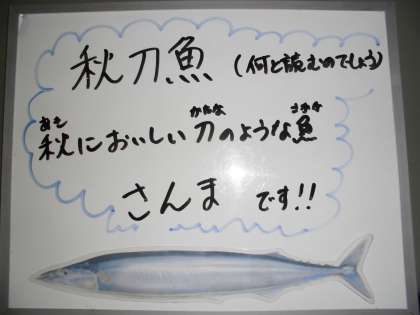 秋刀魚 (何と読むのでしょう)
あき かたな さかな
秋においしい刀のような魚
さんま です!!